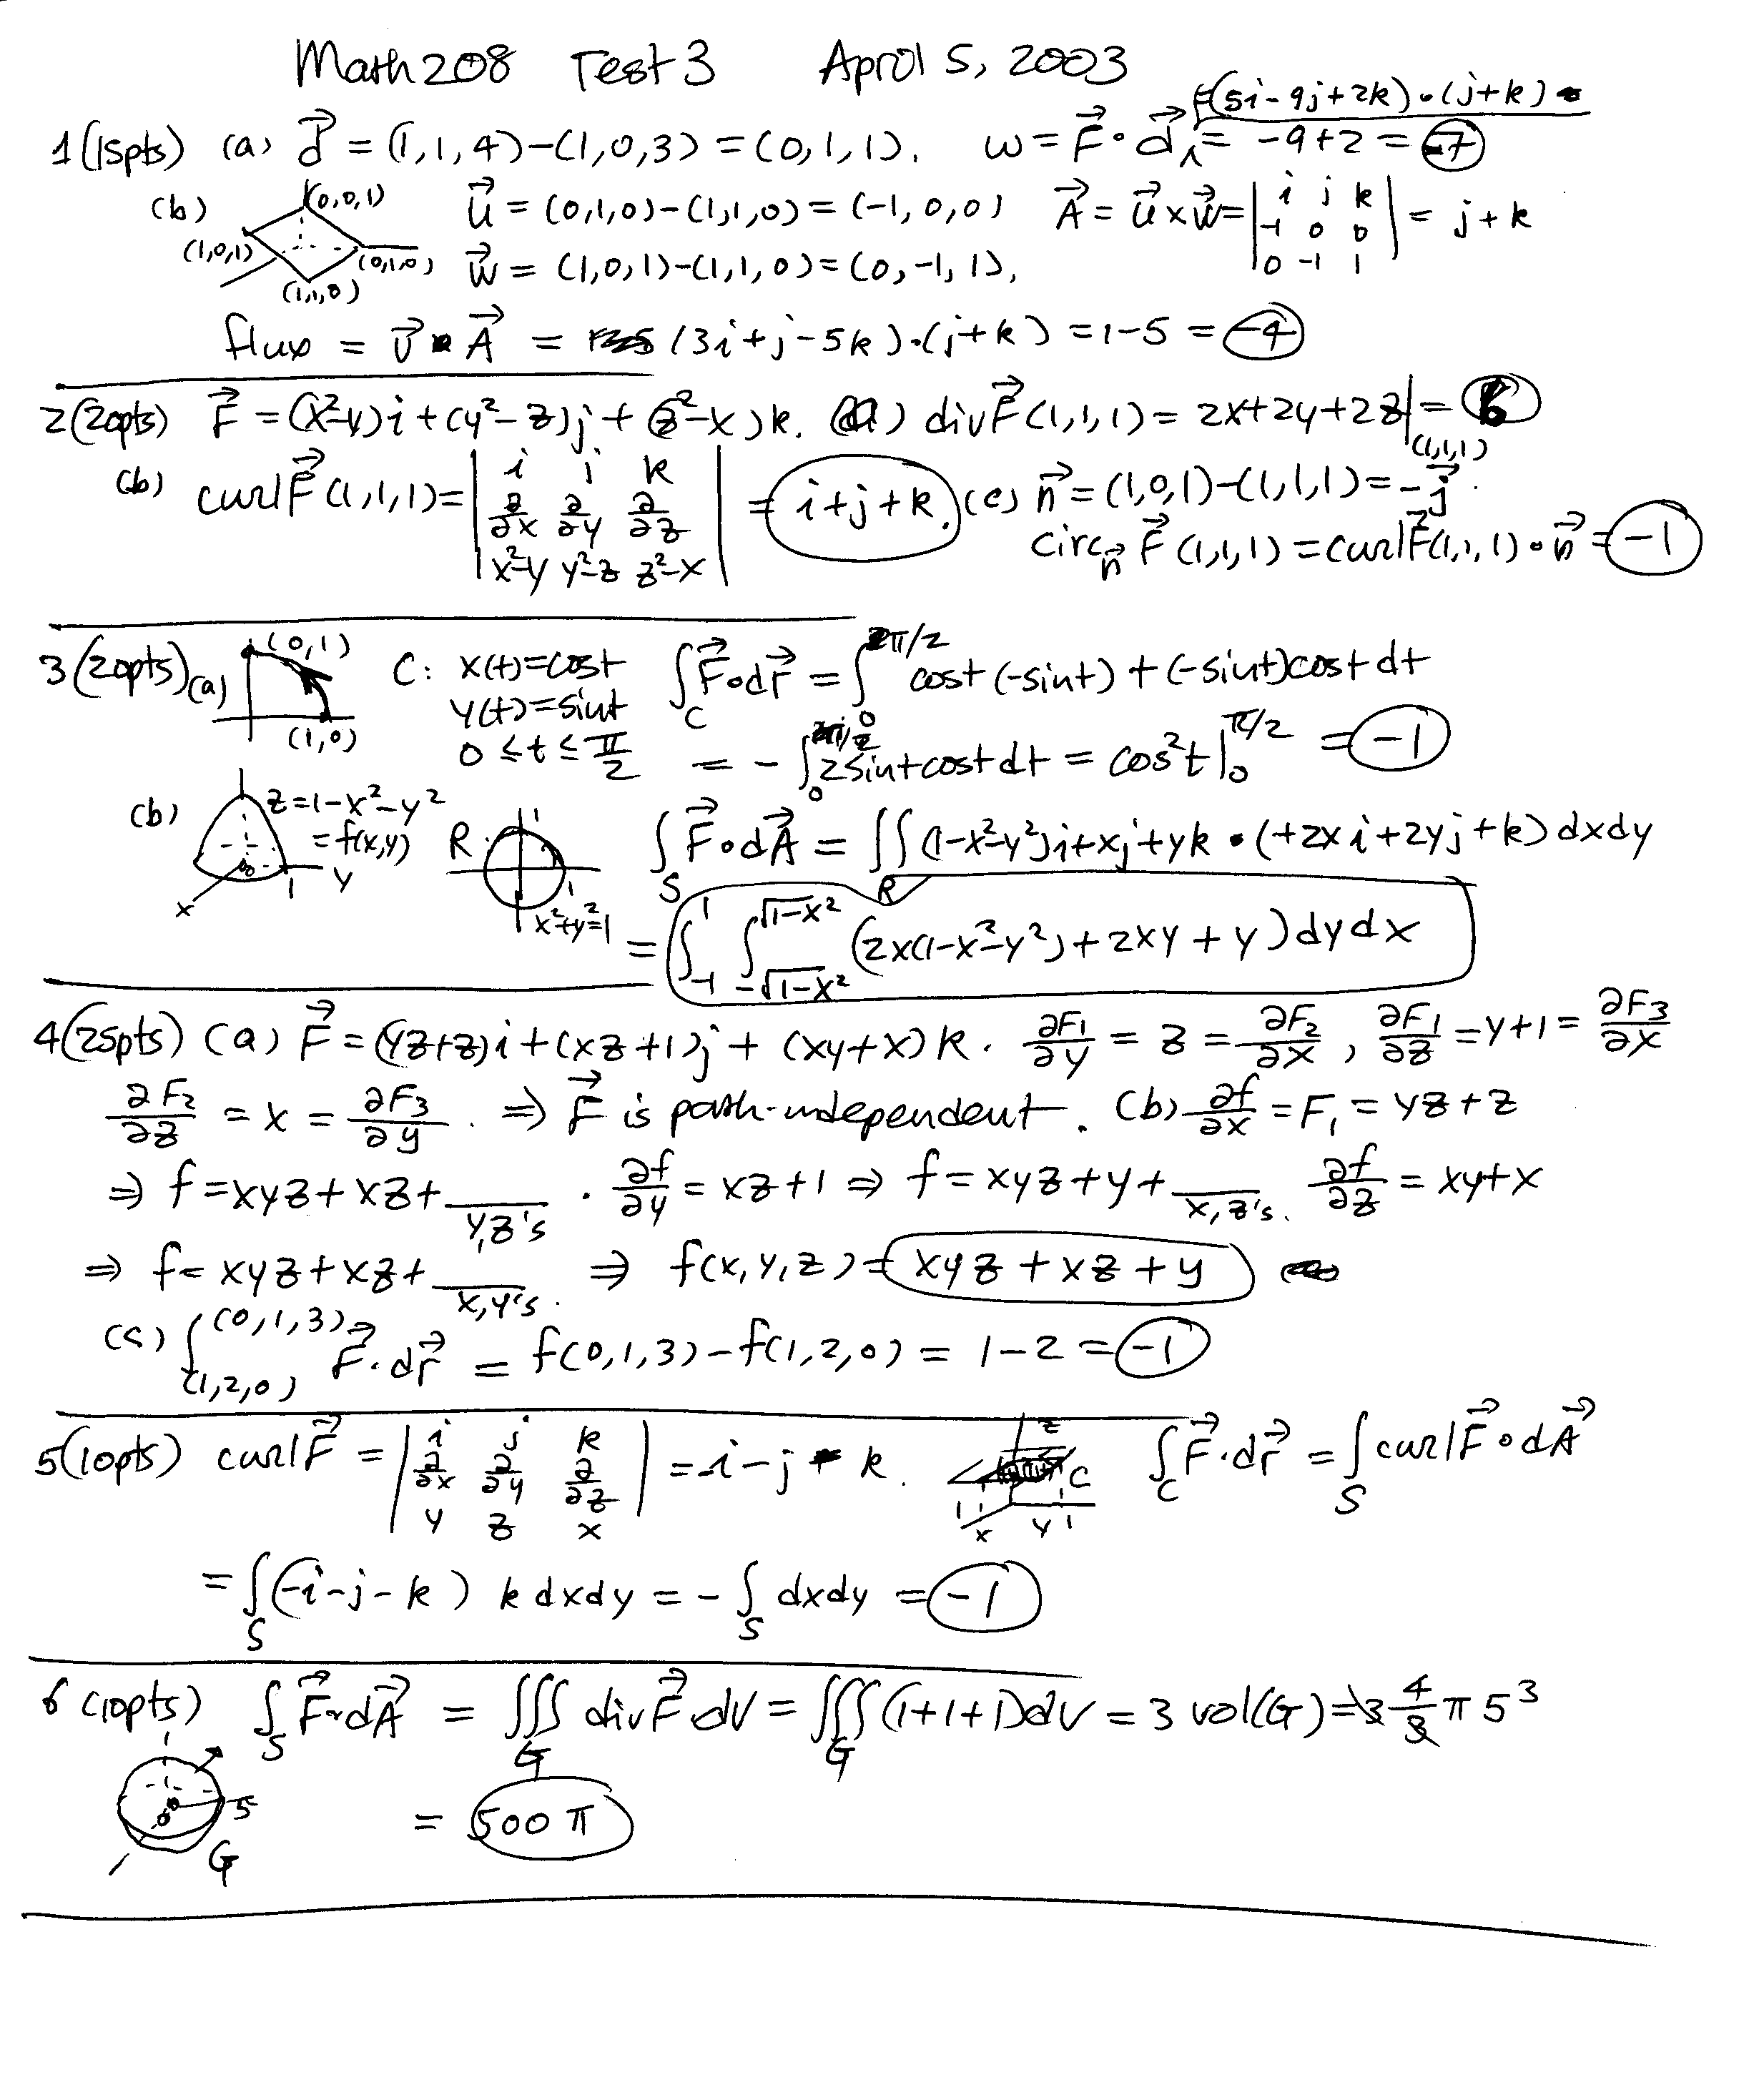 Math 208 Test 3 April 5, 2003
1 (15pts) (a) d⃗ = (1,1,4)-(1,0,3) = (0,1,1). w = F⃗ • d⃗ = (5i-9j+2k)•(j+k) = -9+2 = -7
(b) (0,0,1) (1,0,1) (0,1,0) (1,1,0) u⃗ = (0,1,0)-(1,1,0) = (-1,0,0) A⃗ = u⃗ × w⃗ = | i j k | -1 0 0 | 0 -1 1 | = j+k
w⃗ = (1,0,1)-(1,1,0) = (0,-1,1),
flux = v⃗ • A⃗ = (3i+j-5k)•(j+k) = 1-5 = -4
2 (20pts) F⃗ = (x²-y)i+(y²-z)j+(z²-x)k. (a) div F⃗ (1,1,1) = 2x+2y+2z|(1,1,1) = 6
(b) curl F⃗ (1,1,1) = | i j k | ∂/∂x ∂/∂y ∂/∂z | x²-y y²-z z²-x | = i+j+k. (c) n⃗ = (1,0,1)-(1,1,1) = -j⃗.
circ_n⃗ F⃗ (1,1,1) = curl F⃗(1,1,1)•n⃗ = -1
3 (20pts) (a) (0,1) (1,0) C: x(t)=cost y(t)=sint 0≤t≤π/2 ∫_C F⃗•dr⃗ = ∫_0^{π/2} cost(-sint)+(-sint)cost dt
= -∫_0^{π/2} 2sintcost dt = cos²t|_0^{π/2} = -1
(b) z=1-x²-y² = f(x,y) x y 1 R 1 1 x²+y²=1 ∫_S F⃗•dA⃗ = ∬_R (1-x²-y²)i+xj+yk • (+2xi+2yj+k)dxdy
= ∫_{-1}^{1} ∫_{-√(1-x²)}^{√(1-x²)} (2x(1-x²-y²)+2xy+y)dydx
4 (25pts) (a) F⃗ = (yz+z)i+(xz+1)j+(xy+x)k. ∂F₁/∂y = z = ∂F₂/∂x, ∂F₁/∂z = y+1 = ∂F₃/∂x
∂F₂/∂z = x = ∂F₃/∂y. ⇒ F⃗ is path-independent. (b) ∂f/∂x = F₁ = yz+z
⇒ f = xyz+xz+ __ y,z's. ∂f/∂y = xz+1 ⇒ f = xyz+y+ __ x,z's. ∂f/∂z = xy+x
⇒ f = xyz+xz+ __ x,y's. ⇒ f(x,y,z) = xyz+xz+y
(c) ∫_{(1,2,0)}^{(0,1,3)} F⃗•dr⃗ = f(0,1,3)-f(1,2,0) = 1-2 = -1
5 (10pts) curl F⃗ = | i j k | ∂/∂x ∂/∂y ∂/∂z | y z x | = -i-j-k. z C 1 x y 1 ∫_C F⃗•dr⃗ = ∫_S curl F⃗•dA⃗
= ∫_S (-i-j-k) k dxdy = -∫_S dxdy = -1
6 (10pts) ∫_S F⃗•dA⃗ = ∭_G div F⃗ dV = ∭_G (1+1+1)dV = 3 vol(G) = 3 4/3 π 5³
5 G = 500π